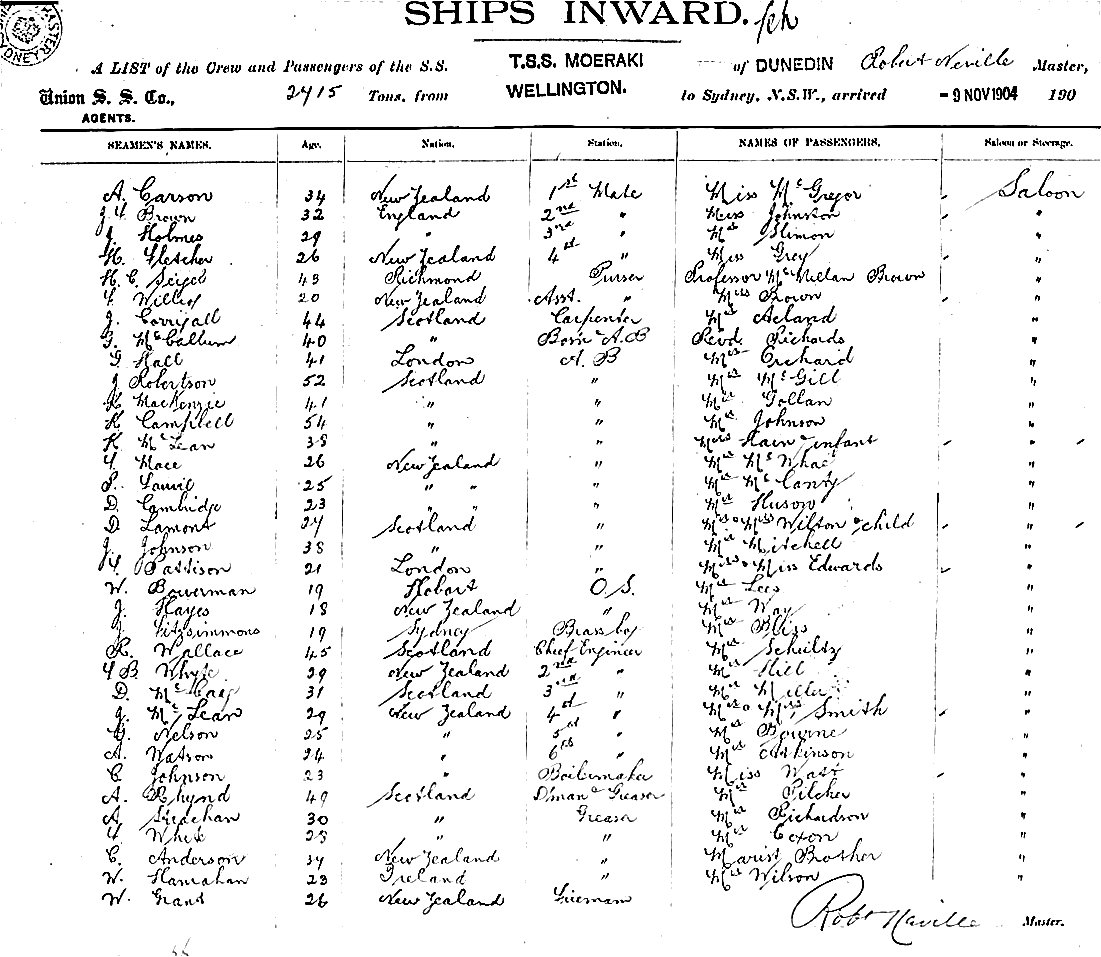 SHIPS INWARD.
A LIST of the Crew and Passengers of the S.S. T.S.S. MOERAKI of DUNEDIN Robert Neville Master,
Union S. S. Co., 2415 Tons, from WELLINGTON. to Sydney, N.S.W., arrived - 9 NOV 1904 190
AGENTS.
SEAMEN'S NAMES. Age. Nation. Station. NAMES OF PASSENGERS. Saloon or Steerage.
A. Carson 34 New Zealand 1st Mate Miss McGregor Saloon
Brown 32 England 2nd " Miss Johnston "
J. Holmes 29 " 3rd " Mr Slimon "
H. Fletcher 26 New Zealand 4st " Miss Grey "
H. C. 43 Richmond Purser Professor McMillan Brown "
20 New Zealand Asst. " Mrs Brown "
J. Corrigall 44 Scotland Carpenter Mr Acland "
G. McCallum 40 " Bosn A.B Revd. Richards "
Hall 41 London A.B Mr Orchard "
J Robertson 52 Scotland " Mr McGill "
K MacKenzie 41 " " Mr Gollan "
K Campbell 54 " " Mr Johnson "
K McLean 38 " " Mrs infant "
Mace 26 New Zealand " Mr "
25 " " " Mr McCarty "
D. Cambridge 23 " " " Mr Huson "
D Lamont 27 Scotland " Mr & Mrs Wilson & child "
J. Johnson 38 " " Mr Mitchell "
Pattison 21 London " Mr & Miss Edwards "
W. Bowerman 19 Hobart O.S. Mr Lees "
J. Hayes 18 New Zealand " Mr Way "
J Fitzsimmons 19 Sydney Brassboy Mr Bliss "
R. Wallace 45 Scotland Chief Engineer Mr Schultz "
B. Whyte 29 New Zealand 2nd " Mr Hill "
D. 31 Scotland 3rd " Mr Miller "
J. McLean 29 New Zealand 4st " Mr & Mrs Smith "
G. Nelson 25 " 5st " Mr Bourne "
A. Watson 24 " 6th " Mr Atkinson "
C Johnson 23 " Boilermaker Miss Watt "
A. Rhynd 49 Scotland D'man & Greaser Mr Pilcher "
A. Strachan 30 " Greaser Mr Richardson "
White 28 " " Mr Coxon "
C. Anderson 34 New Zealand " Marist Brother "
W. Hanrahan 23 Ireland " Mr Wilson "
W. Grant 26 New Zealand Fireman
Robt Neville Master.